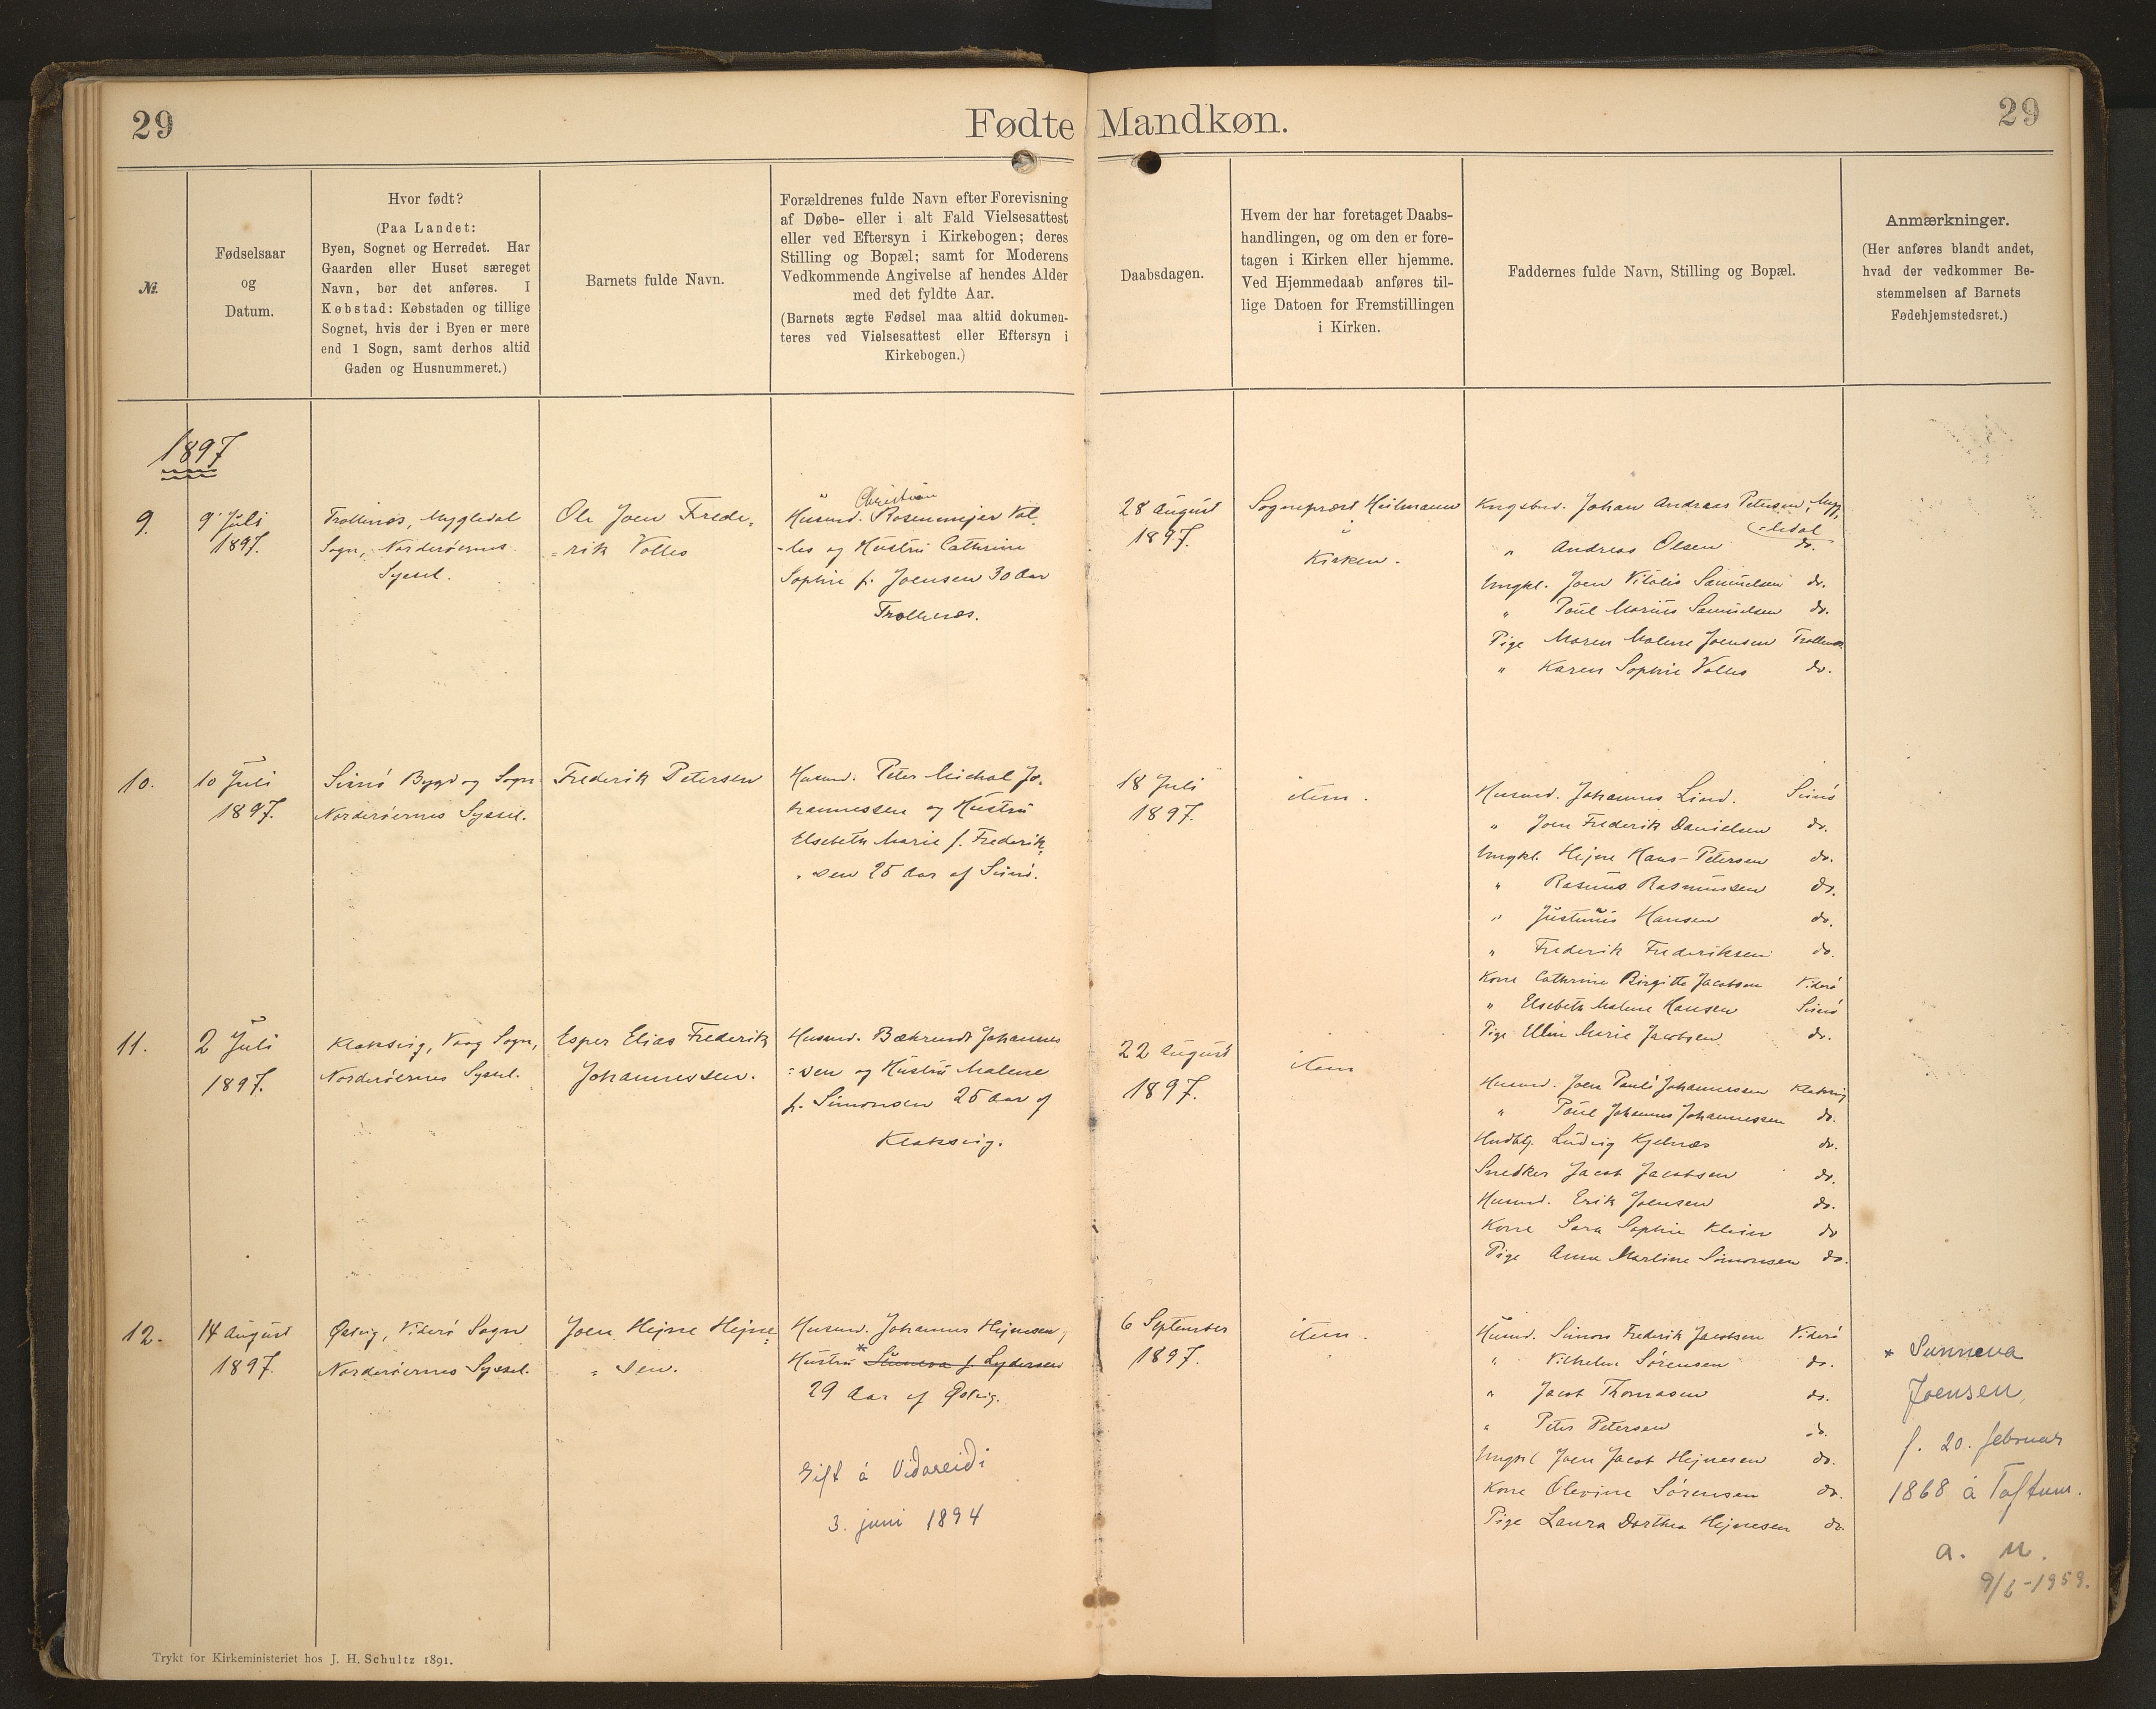 29
Fødte Mandkøn.
29
№.
Fødselsaar
og
Datum.
Hvor født?
(Paa Landet:
Byen, Sognet og Herredet. Har
Gaarden eller Huset særeget
Navn, bør det anføres. I
Købstad: Købstaden og tillige
Sognet, hvis der i Byen er mere
end 1 Sogn, samt derhos altid
Gaden og Husnummeret.)
Barnets fulde Navn.
Forældrenes fulde Navn efter Forevisning
af Døbe- eller i alt Fald Vielsesattest
eller ved Eftersyn i Kirkebogen; deres
Stilling og Bopæl; samt for Moderens
Vedkommende Angivelse af hendes Alder
med det fyldte Aar.
(Barnets ægte Fødsel maa altid dokumen-
teres ved Vielsesattest eller Eftersyn i
Kirkebogen.)
Daabsdagen.
Hvem der har foretaget Daabs-
handlingen, og om den er fore-
tagen i Kirken eller hjemme.
Ved Hjemmedaab anføres til-
lige Datoen for Fremstillingen
i Kirken.
Faddernes fulde Navn, Stilling og Bopæl.
Anmærkninger.
(Her anføres blandt andet,
hvad der vedkommer Be-
stemmelsen af Barnets
Fødehjemstedsret.)
1897
9.
9 Juli
1897.
Trollenæs, Mygledal
Sogn, Norderøernes
Syssel.
Ole Joen Frede-
=rik Volles
Christian
Husmd. Rosenmejer Vol-
-les og Hustru Cathrine
Sophie f. Joensen 30 Aar
Trollenæs.
28 August
1897.
Sognepræst Heilmann
i
Kirken.
Kngsbd. Johan Andreas Petersen, Myg-
-ledal
" Andreas Olsen do.
Ungkl. Joen Vitalis Samuelsen do.
" Poul Marius Samuelsen do.
Pige Maren Malene Joensen Trollenæs
" Karen Sophie Volles do.
10.
10 Juli
1897.
Svinø Bygd og Sogn
Norderøernes Syssel.
Frederik Petersen
Husmd. Peter Michal Jo-
hannessen og Hustru
Elsebeth Marie f. Frederik-
-sen 25 Aar af Svinø.
18 Juli
1897.
item.
Husmd. Johannes Lind. Svinø
" Joen Frederik Danielsen do.
Ungkl. Hejne Hans-Petersen do.
" Rasmus Rasmussen do.
" Justinus Hansen do.
" Frederik Frederiksen do.
Kone Cathrine Birgitte Jacobsen Viderø
" Elsebeth Malene Hansen Svinø
Pige Ellen Marie Jacobsen do.
11.
2 Juli
1897.
Klaksvig, Vaag Sogn,
Norderøernes Syssel.
Esper Elias Frederik
Johannessen.
Husmd. Bæhrendt Johannes
=sen og Hustru Malene
f. Simonsen 25 Aar af
Klaksvig.
22 August
1897.
item
Husmd. Joen Pauli Johannessen Klaksvig
" Poul Johannes Johannessen do.
Hndlbtj. Ludvig Kjelnæs do.
Snedker Jacob Jacobsen do.
Husmd. Erik Joensen do.
Kone Sara Sophie Klein do
Pige Anna Martine Simonsen do.
12.
14 August
1897.
Østvig, Viderø Sogn
Norderøernes Syssel.
Joen Hejne Hejne
=sen.
Husmd. Johannes Hejnesen,
Hustru * Sunneva f. Lydersen
29 Aar af Østvig.
Gift á Viðareiði
3. juni 1894
6 September
1897.
item.
Husmd. Simon Frederik Jacobsen Viderø
" Vilhelm Sørensen do.
" Jacob Thomasen do.
" Peter Petersen do.
Ungkl Joen Jacob Hejnesen do.
Kone Olevine Sørensen do.
Pige Laura Dorthea Hejnesen do.
* Sunneva
Joensen,
f. 20. februar
1868 á Toftum.
a. n.
9/6-1959.
Trykt for Kirkeministeriet hos J. H. Schultz 1891.